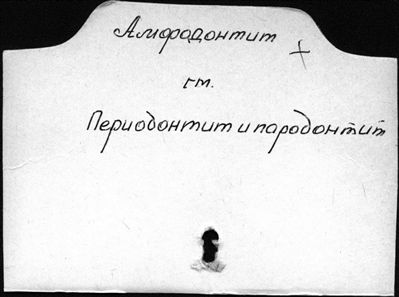 Амфодонтит
см.
Периодонтит и пародонтит